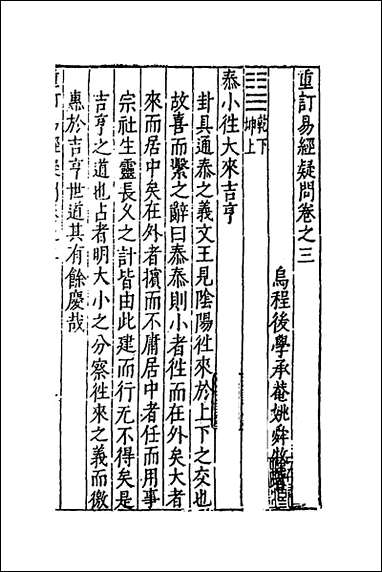 重訂易經疑問卷之三
烏程後學承菴姚舜牧
乾下
坤上
泰小徃大來吉亨
卦具通泰之義文王見陰陽徃來於上下之交也
故喜而繫之辭曰泰泰則小者徃而在外矣大者
來而居中矣在外者擯而不庸居中者任而用事
宗社生靈長久之計皆由此建而行无不得矣是
吉亨之道也占者明大小之分察徃來之義而徼
惠於吉亨世道其有餘慶哉